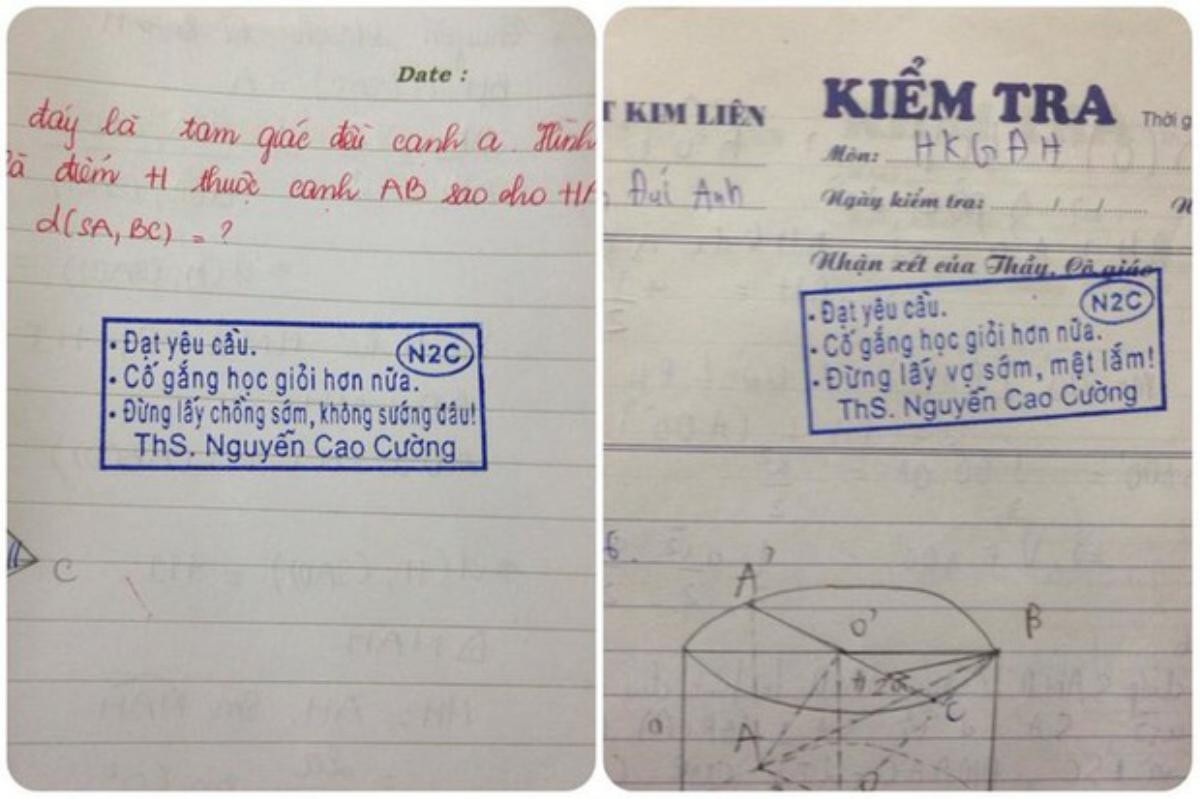 Date :
đáy là tam giác đều cạnh a. Hình
là điểm H thuộc cạnh AB sao cho HA
d(SA, BC) = ?
• Đạt yêu cầu.
N2C
• Cố gắng học giỏi hơn nữa.
• Đừng lấy chồng sớm, không sướng đâu!
ThS. Nguyễn Cao Cường
C
T KIM LIÊN
KIỂM TRA
Thời g
Môn: HKGAH
Đuí Anh
Ngày kiểm tra: ......./....../.......
N
Nhận xét của Thầy, Cô giáo
• Đạt yêu cầu.
N2C
• Cố gắng học giỏi hơn nữa.
• Đừng lấy vợ sớm, mệt lắm!
ThS. Nguyễn Cao Cường
6.
A'
O'
B
C
A